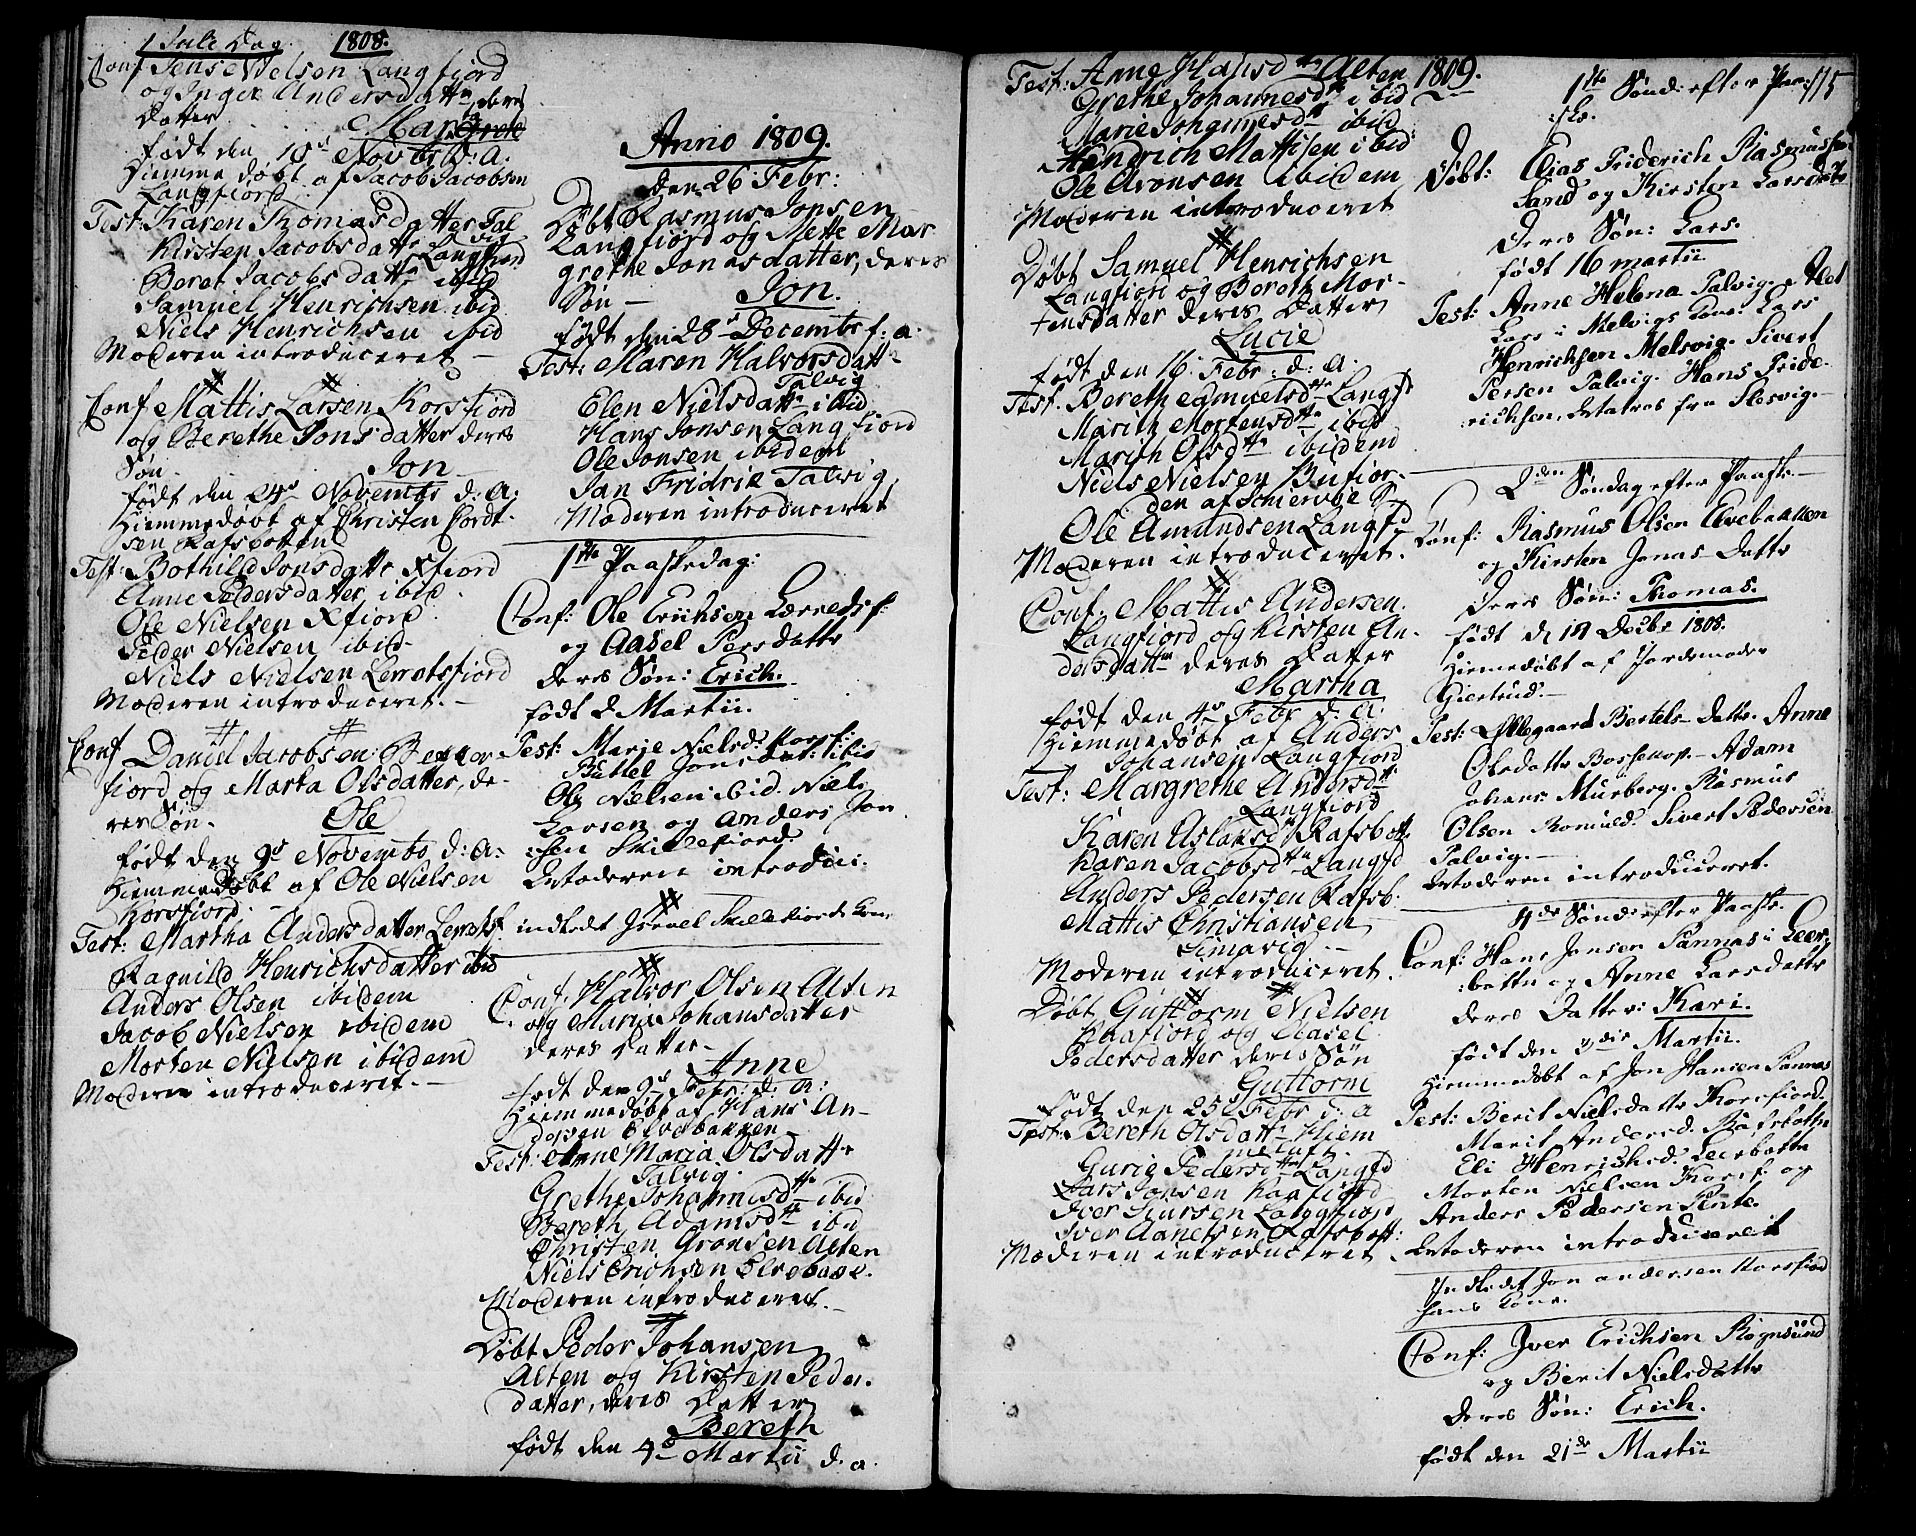 1 Jule Dag 1808.
Conf Jens Nielsen Langfiord
og Inger Andersdattr deres
Datter Margrete
født den 10de Novbr d: A:
Hiemmedøbt af Jacob Jacobsen
Langfiord
Test: Karen Thomasdatter Tal
vig
Kirsten Jacobsdattr Langfiord
Beret Jacobsdattr ibid
Samuel Henrichsen ibid
Niels Henrichsen ibid
Moderen introduceret –
Conf Mattis Larsen Korsfiord
og Berethe Jonsdatter deres
Søn Jon
født den 24de Novembr d: A:
Hiemmedøbt af Christen Cordt-
sen Rafsbotten
Test: Bothild Jonsdattr Kfiord
Anne Pedersdatter ibid.
Ole Nielsen Kfiord
Peder Nielsen ibid
Niels Nielsen Lerretsfiord
Moderen introduceret. –
Conf Daniel Jacobsen
fiord og Marta Olsdatter, de-
res Søn. Ole
født den 9de Novembr d: A:
Hiemmedøbt af Ole Nielsen
Korsfiord.
Test: Martha Andersdatter
Ragnild Henrichsdatter ibid
Anders Olsen ibidem
Jacob Nielsen ibidem
Morten Nielsen ibidem
Moderen introduceret. –
Anno 1809.
Den 26 Febr:
Døbt Rasmus Jonsen
Langfiord og Mette Mar
grethe Jonasdatter, deres
Søn – Jon.
født den 28de Decembr f. a.
Test: Maren Halvorsdattr
Talvig
Elen Nielsdattr ibid
Hans Jonsen Langfiord
Ole Jonsen ibidem
Jan Fridric Talvig
Moderen introduceret
1ste Paaskedag:
Conf: Ole Erichsen Lerredsf:
og Aasel Persdattr
deres Søn: Erich.
født d Martii.
Test: Marie Nielsd: Korsf:
Ole Nielsen ibid. Niels
Larsen og Anders Jon
:sen Skillefiord.
Moderen introduc:
indledt Israel Skillefiords Kone
Conf: Halvor Olsen Alten
og Maria Johansdatter
deres Datter – Anne
født den 9de Febr: d: A:
Hiemmedøbt af Hans An-
dersen Elvebakken –
Test: Anne Maria Olsdattr
Talvig.
Grethe Johannesdttr ibid
Bereth Adamsdttr ibid
Christen Aronsen Alten
Niels Erichsen Elvebakk.
Moderen introduceret. –
Døbt Peder Johansen
Alten og Kirsten Peder.
datter, deres Datter
Bereth
født den 4de Martii d. a.
Test: Anne Hansdttr Alten 1809.
Grethe Johannesdttr ibid
Marie Johannesdttr ibid
Hendrich Mattisen ibid
Ole Aronsen ibidem
Moderen introduceret
Døbt Samuel Henrichsen
Langfiord og Bereth Mor-
tensdatter deres Datter
Lucie
født den 16 Febr. d: A:
Test. Bereth Samuelsdttr Langfd
Marith Mortensdttr ibid
Marith Olsdttr ibidem
Niels Nielsen Bufior-
den af Schiervøe
Ole Amundsen Langfd
Moderen introduceret.
Conf. Mattis Andersen
Langfiord og Kirsten An-
dersdattr deres Datter
Martha
født den 4de Febr d: A:
Hiemmedøbt af Anders
Johansen Langfiord
Test: Margrethe Andersdttr
Langfiord
Karen Aslaksd Rafsbott.
Karen Jacobsdttr Langfd
Anders Pedersen Rafsb:
Mattis Christiansen
Simavig. –
Moderen introduceret.
Døbt Guttorm Nielsen
Kaafiord og Aasel
Pedersdatter deres Søn
Guttorm
født den 25 Febr d: a
Test: Bereth Olsdattr Hiem
meluft.
Gurie Pedersdttr Langfd
Lars Jonsen Kaafiord
Iver Siursen Langfiord
Iver Aanetsen Rafsbott:
Moderen introduceret
1ste Sønd: efter Paa: 175
:ske.
Døbt: Elias Friderich Rasmussen
Sand og Kirsten Larsdattr
deres Søn: Lars.
født 16 martii
Test: Anne Helena Talvig.
Lars i Melvigs Kone. Lars
Henrichsen Melsvig. Sivert
Persen Talvig. Hans Fride-
richsen, fra Slesvig. –
2den Søndag efter Paaske. –
Conf: Rasmus Olsen Elvebakken
og Kirsten Jonas Dattr
deres Søn: Thomas.
født d 19 Decbr 1808.
Hiemedøbt af Jordemoder
Giertrud. –
Test: Bertels-Dattr. Anne
Olesdattr Bossekop. – Adam
Johans: Murberg. Rasmus
Olsen Romuld. Sivert Pedersen
Talvig. –
Moderen introduceret.
4de Sønd: efter Paaske.
Conf: Hans Jonsen Sannas i Leer
:botten og Anne Larsdattr
deres Datter: Kari.
født den 3die Martii.
Hiemmedøbt af Jon Hansen Sannas
Test: Berit Nielsdattr Korsfiord.
Marit Andersd: Rafsbotten
Eli Henrichsd: Leerbotten
Morten Nielsen Korsf. og
Anders Pedersen Sente.
Moderen introduceret
Indledet Jon andersen Korsfiord
hans Kone.
Conf: Iver Erichsen Rognsund
og Berit Nielsdattr
deres Søn: Erich.
født den 21de Martii